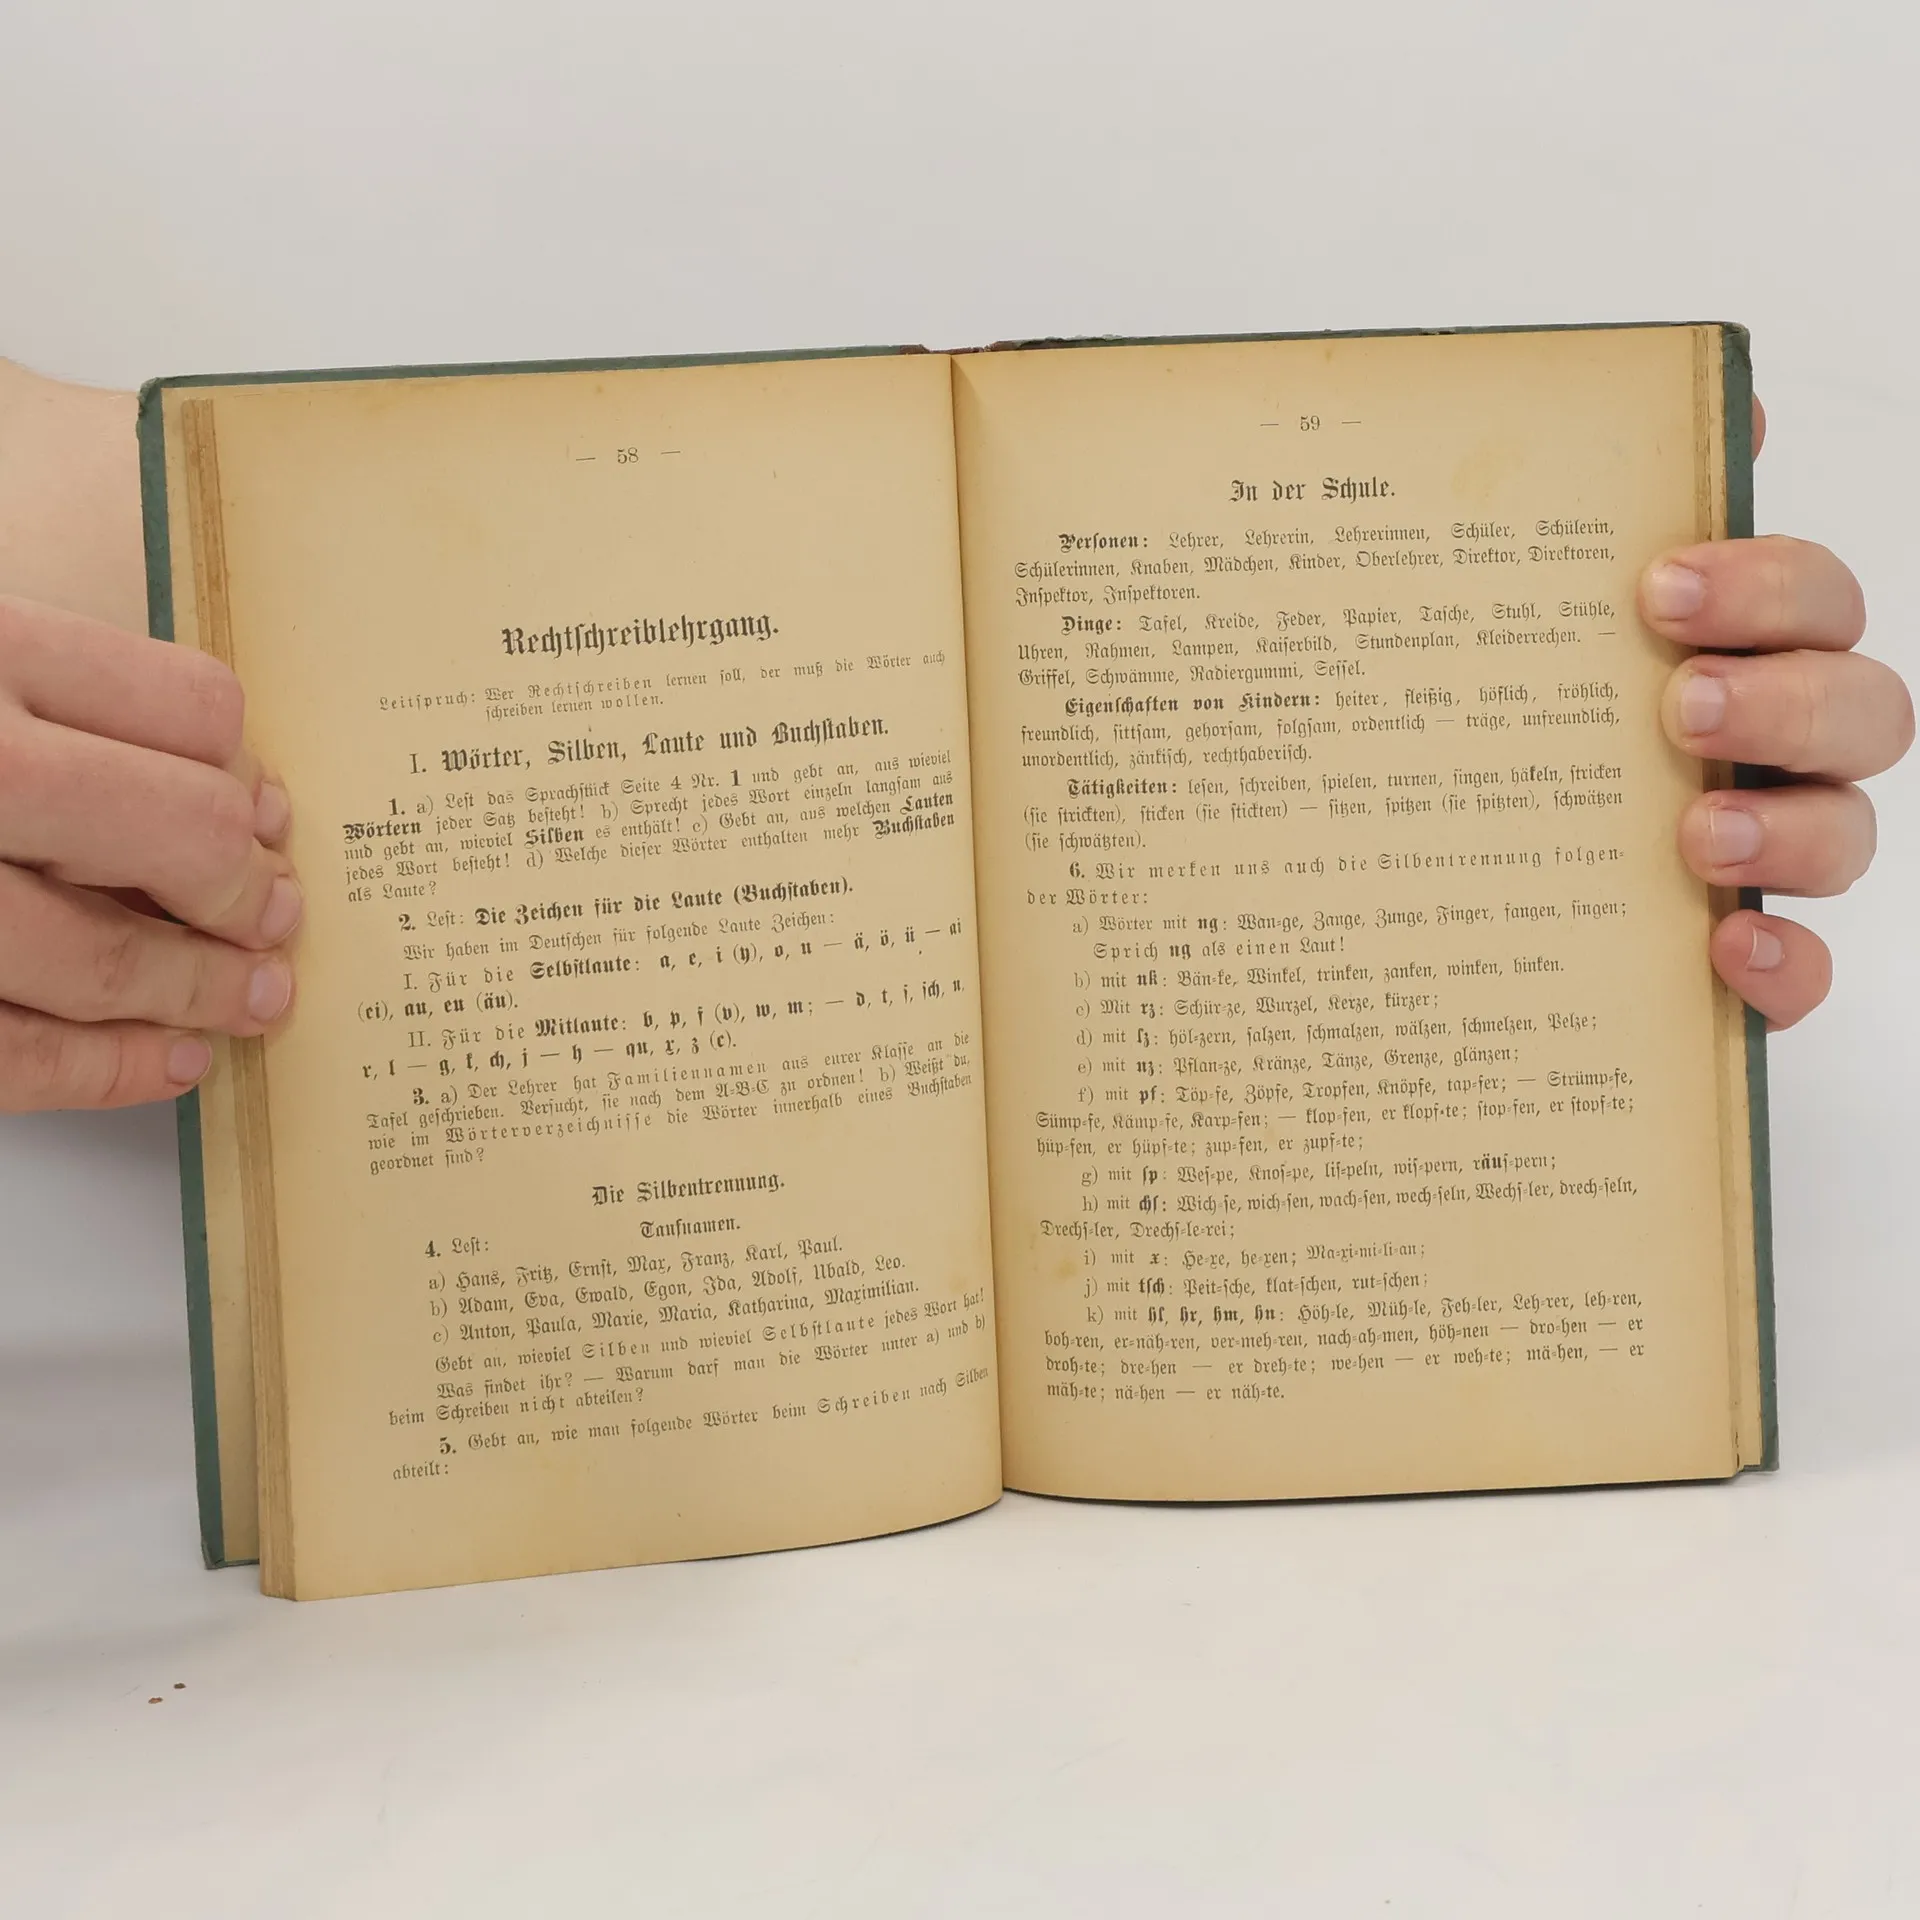 — 58 —
Rechtschreiblehrgang.
Leitspruch: Wer Rechtschreiben lernen soll, der muß die Wörter auch
schreiben lernen wollen.
I. Wörter, Silben, Laute und Buchstaben.
1. a) Lest das Sprachstück Seite 4 Nr. 1 und gebt an, aus wieviel
Wörtern jeder Satz besteht! b) Sprecht jedes Wort einzeln langsam aus
und gebt an, wieviel Silben es enthält! c) Gebt an, aus welchen Lauten
jedes Wort besteht! d) Welche dieser Wörter enthalten mehr Buchstaben
als Laute?
2. Lest: Die Zeichen für die Laute (Buchstaben).
Wir haben im Deutschen für folgende Laute Zeichen:
I. Für die Selbstlaute: a, e, i (y), o, u — ä, ö, ü — ai
(ei), au, eu (äu).
II. Für die Mitlaute: b, p, f (v), w, m; — d, t, s, sch, n,
r, l — g, k, ch, j — h — qu, x, z (c).
3. a) Der Lehrer hat Familiennamen aus eurer Klasse an die
Tafel geschrieben. Versucht, sie nach dem A-B-C zu ordnen! b) Weißt du,
wie im Wörterverzeichnisse die Wörter innerhalb eines Buchstaben
geordnet sind?
Die Silbentrennung.
Taufnamen.
4. Lest:
a) Hans, Fritz, Ernst, Max, Franz, Karl, Paul.
b) Adam, Eva, Ewald, Egon, Ida, Adolf, Ubald, Leo.
c) Anton, Paula, Marie, Maria, Katharina, Maximilian.
Gebt an, wieviel Silben und wieviel Selbstlaute jedes Wort hat!
Was findet ihr? — Warum darf man die Wörter unter a) und b)
beim Schreiben nicht abteilen?
5. Gebt an, wie man folgende Wörter beim Schreiben nach Silben
abteilt:
— 59 —
In der Schule.
Personen: Lehrer, Lehrerin, Lehrerinnen, Schüler, Schülerin,
Schülerinnen, Knaben, Mädchen, Kinder, Oberlehrer, Direktor, Direktoren,
Inspektor, Inspektoren.
Dinge: Tafel, Kreide, Feder, Papier, Tasche, Stuhl, Stühle,
Uhren, Rahmen, Lampen, Kaiserbild, Stundenplan, Kleiderrechen. —
Griffel, Schwämme, Radiergummi, Sessel.
Eigenschaften von Kindern: heiter, fleißig, höflich, fröhlich,
freundlich, sittsam, gehorsam, folgsam, ordentlich — träge, unfreundlich,
unordentlich, zänkisch, rechthaberisch.
Tätigkeiten: lesen, schreiben, spielen, turnen, singen, häkeln, stricken
(sie strickten), sticken (sie stickten) — sitzen, spitzen (sie spitzten), schwätzen
(sie schwätzten).
6. Wir merken uns auch die Silbentrennung folgen-
der Wörter:
a) Wörter mit ng: Wan-ge, Zange, Zunge, Finger, fangen, singen;
Sprich ng als einen Laut!
b) mit nk: Bän-ke, Winkel, trinken, zanken, winken, hinken.
c) Mit rz: Schür-ze, Wurzel, Kerze, kürzer;
d) mit lz: höl-zern, salzen, schmalzen, wälzen, schmelzen, Pelze;
e) mit nz: Pflan-ze, Kränze, Tänze, Grenze, glänzen;
f) mit pf: Töp-fe, Zöpfe, Tropfen, Knöpfe, tap-fer; — Strümp-fe,
Sümp-fe, Kämp-fe, Karp-fen; — klop-fen, er klopf-te; stop-fen, er stopf-te;
hüp-fen, er hüpf-te; zup-fen, er zupf-te;
g) mit sp: Wes-pe, Knos-pe, lis-peln, wis-pern, räus-pern;
h) mit chs: Wich-se, wich-sen, wach-sen, wech-seln, Wechs-ler, drech-seln,
Drechs-ler, Drechs-le-rei;
i) mit x: He-xe, he-xen; Ma-xi-mi-li-an;
j) mit tsch: Peit-sche, klat-schen, rut-schen;
k) mit hl, hr, hm, hn: Höh-le, Müh-le, Feh-ler, Leh-rer, leh-ren,
boh-ren, er-näh-ren, ver-meh-ren, nach-ah-men, höh-nen — dro-hen — er
droh-te; dre-hen — er dreh-te; we-hen — er weh-te; mä-hen, — er
mäh-te; nä-hen — er näh-te.